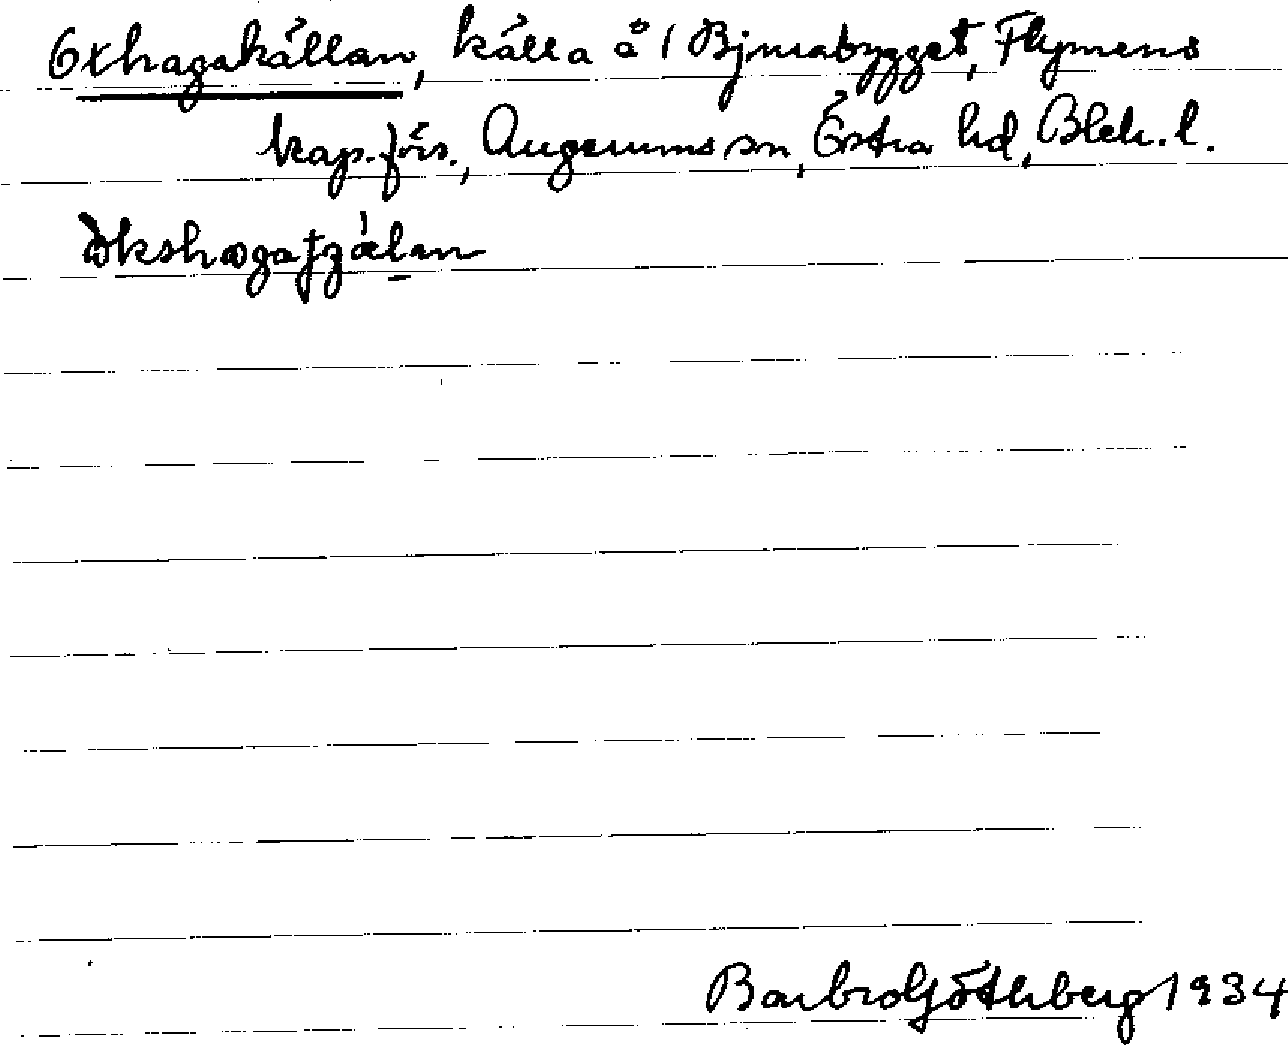 Oxhagakällan, källa å 1 Bjurabygget, Flymens
kap.förs., Augerums sn, Östra hd, Blek. l.
Barbro Göthberg 1934